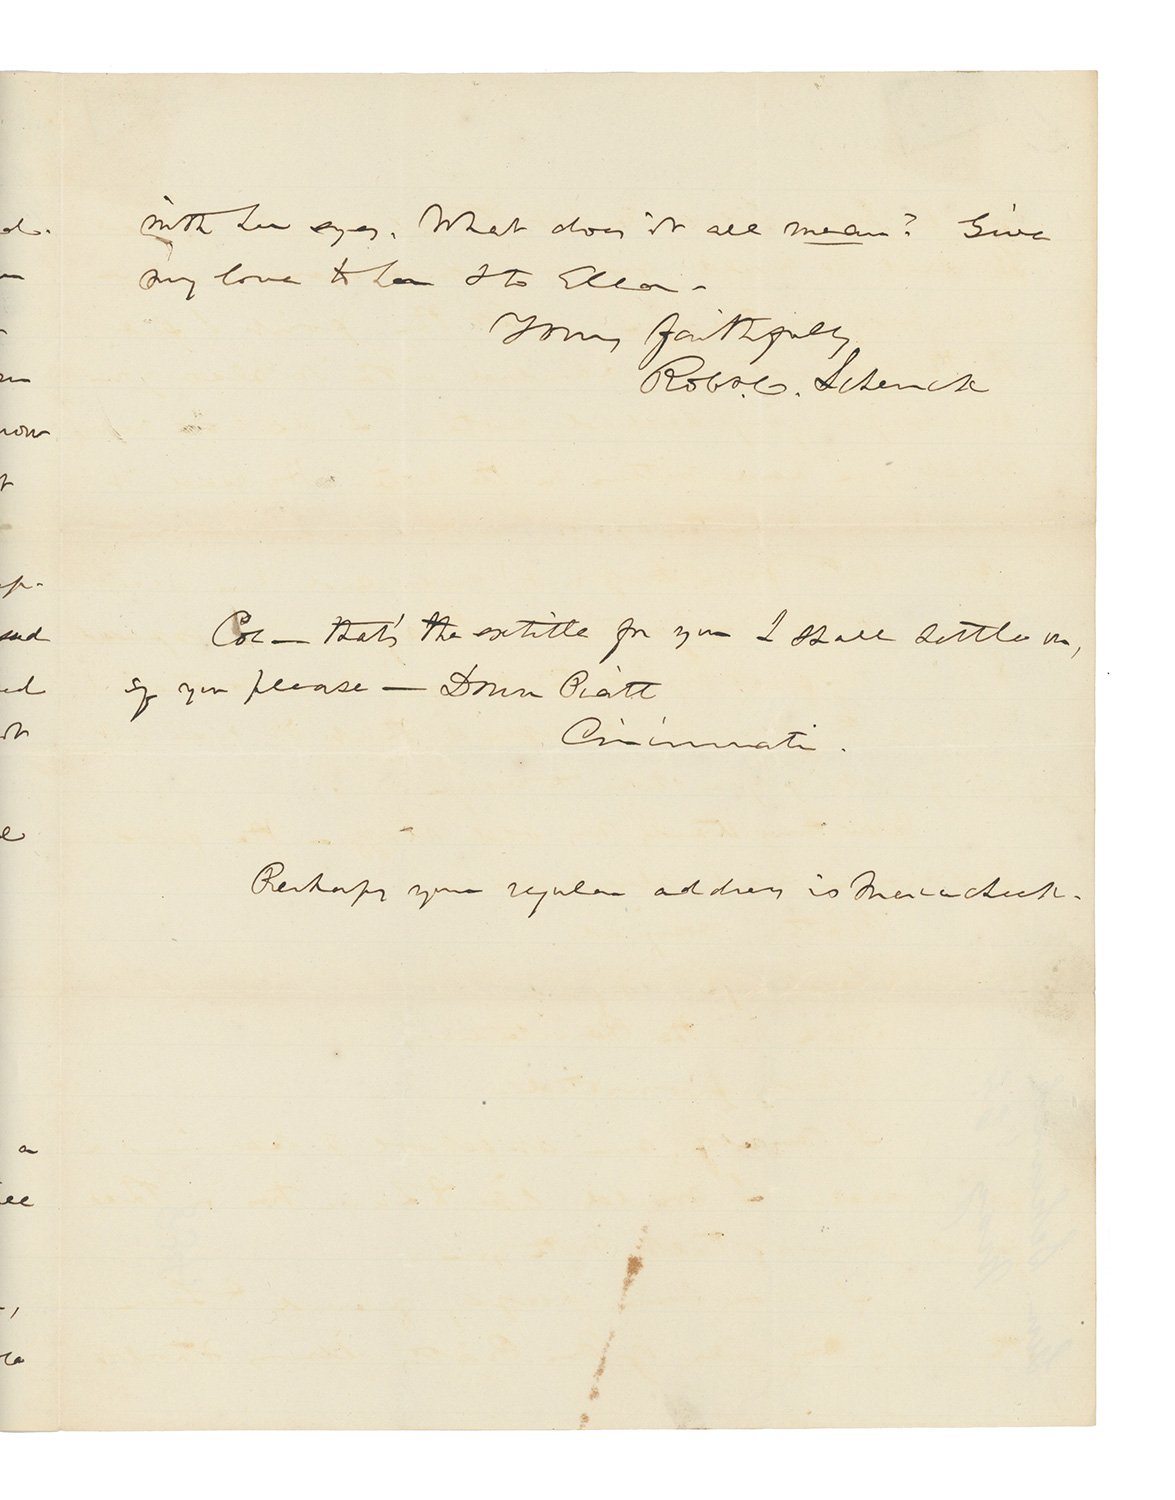 with her eyes. What does it all mean? Give
my love to her & to Ella.
Yours faithfully
Robt. C. Schenck
Col — that's the title for you I shall settle on,
if you please — Donn Piatt
Cincinnati.
Perhaps your regular address is Mac-o-cheek.
d.
now
t
and
ed
it
a